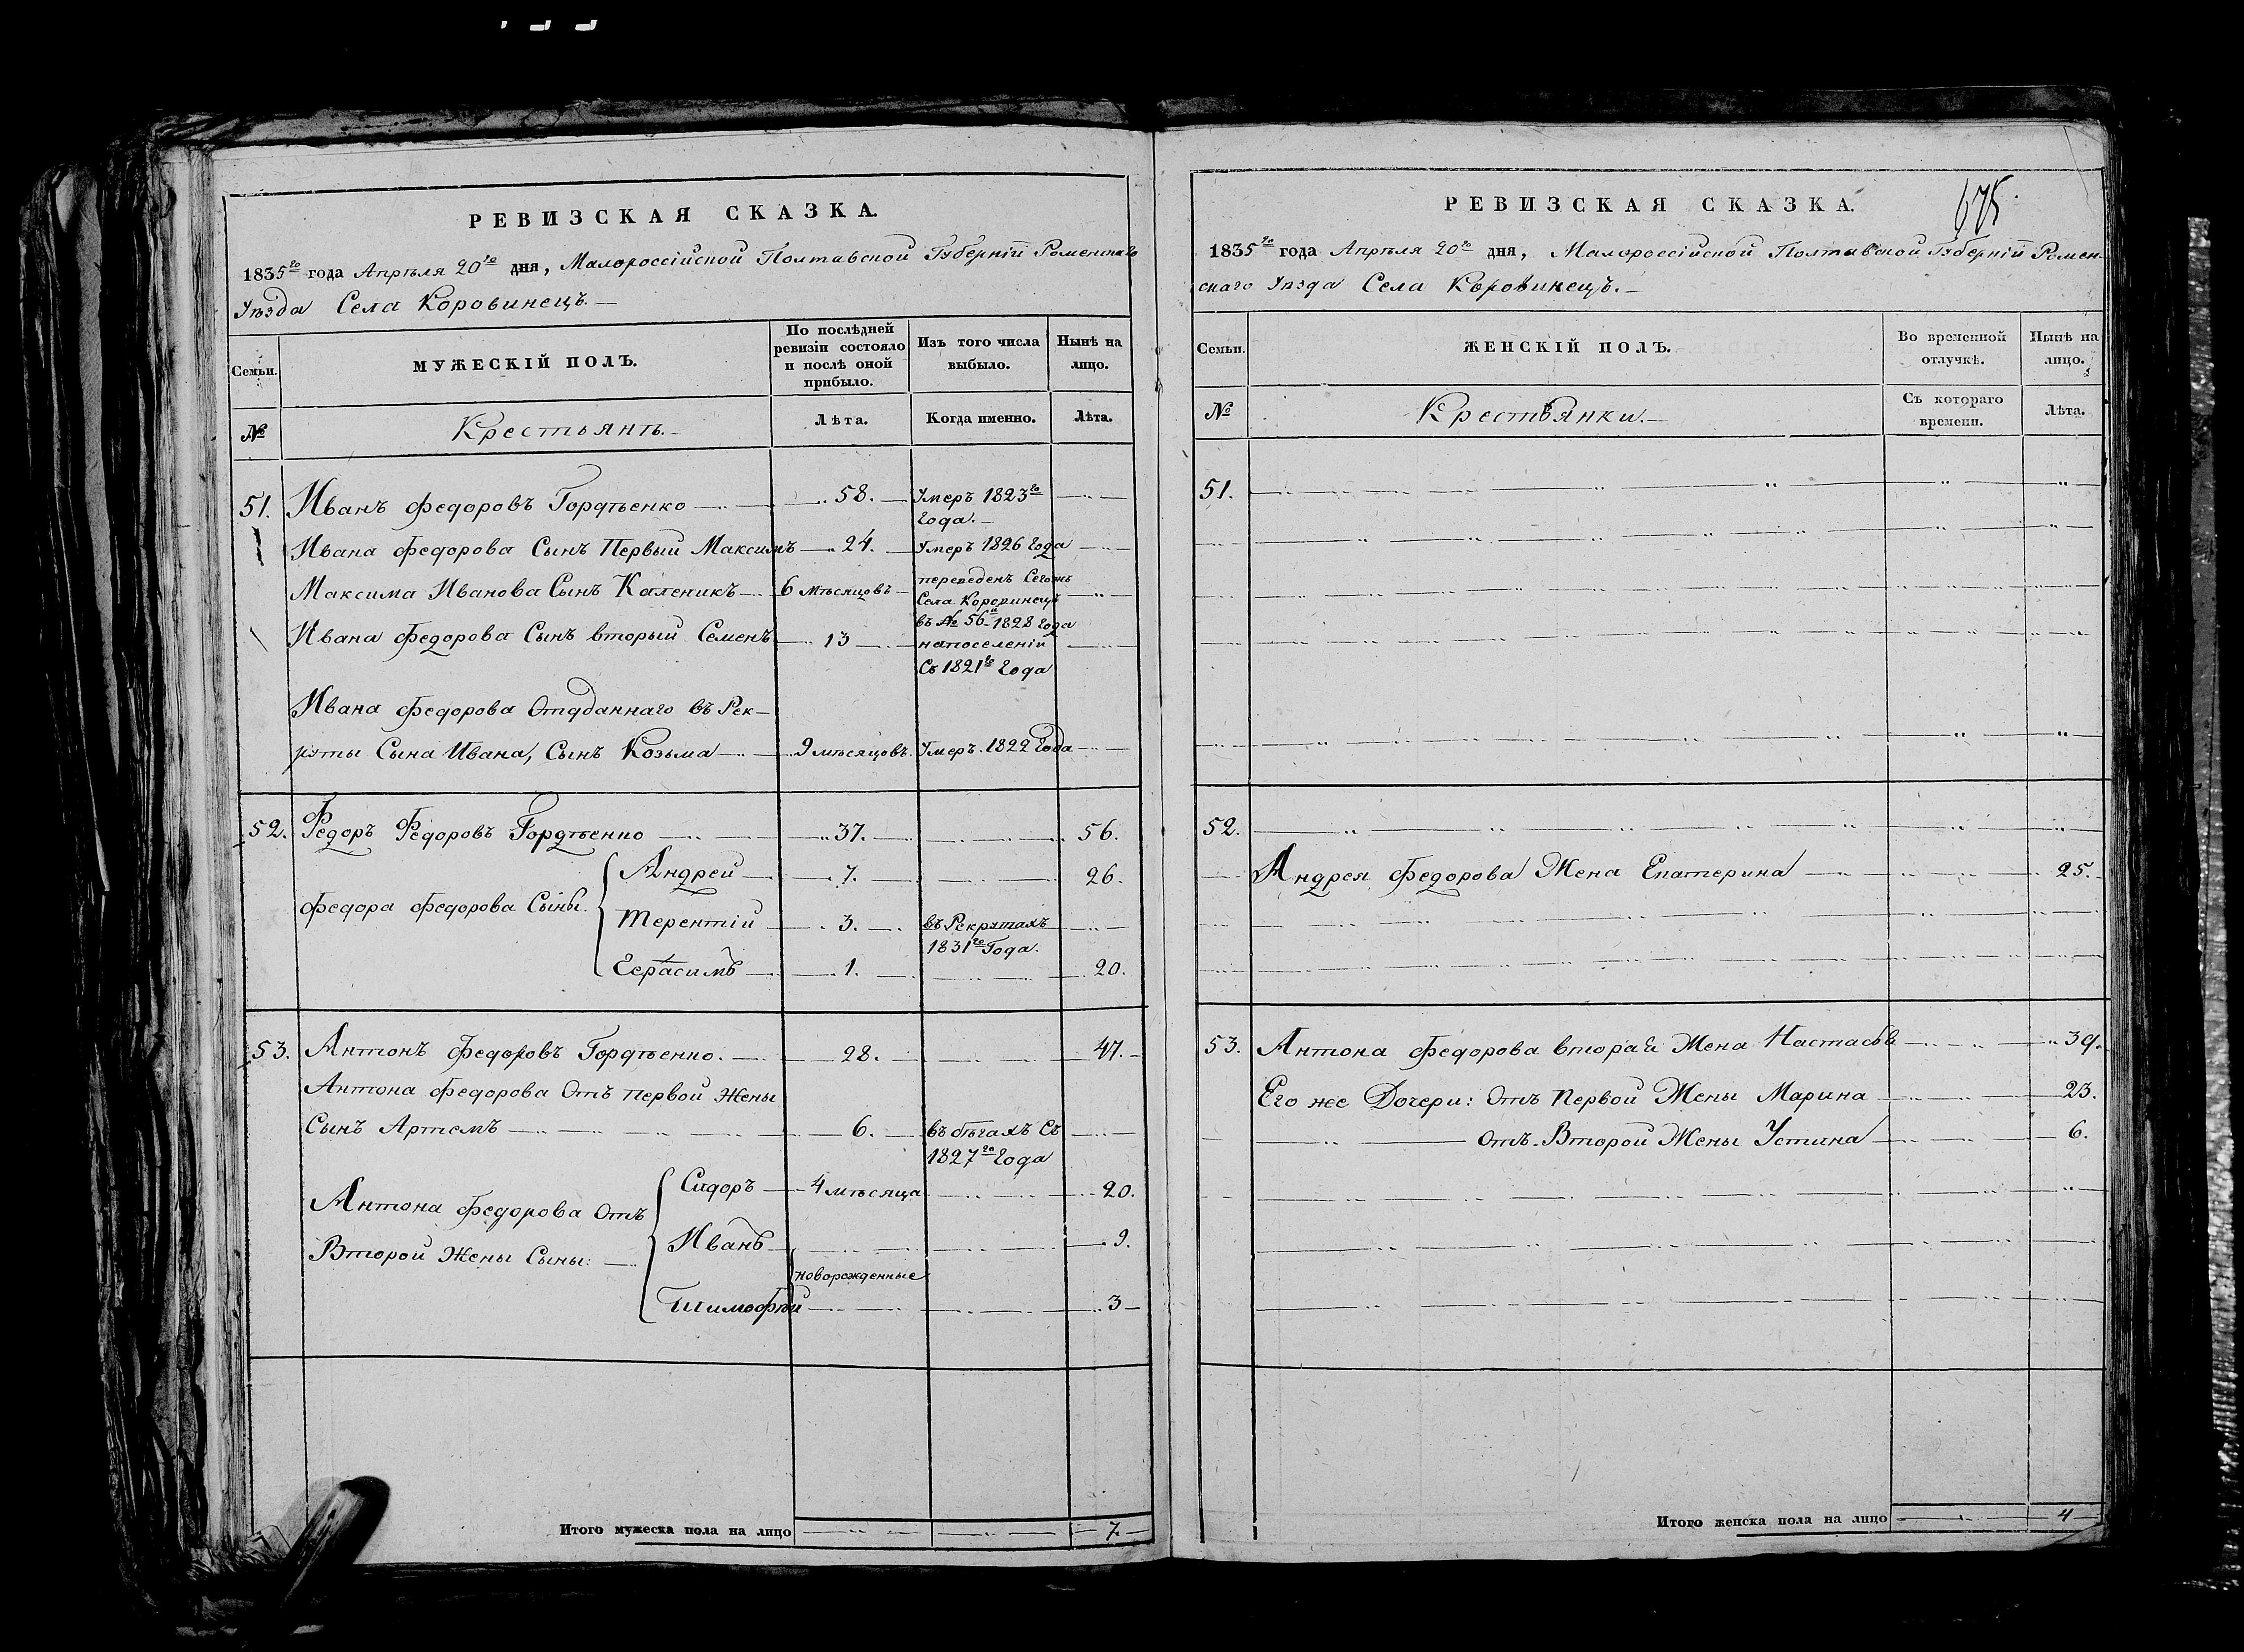 РЕВИЗСКАЯ СКАЗКА.
1835го года Апрѣля 20го дня, Малороссійской Полтавской Губерніи Роменскаго
Уѣзда Села Коровинецъ.
Семьи.
МУЖЕСКІЙ ПОЛЪ.
По послѣдней ревизіи состояло и послѣ оной прибыло.
Изъ того числа выбыло.
Нынѣ на лицо.
№
Крестьянъ.
Лѣта.
Когда именно.
Лѣта.
51. Иванъ Федоровъ Гордѣенко 58. Умеръ 1823го
Года.
Ивана Федорова Сынъ Первый Максимъ 24. Умеръ 1826 Года
Максима Иванова Сынъ Каленикъ 6 мѣсяцовъ переведенъ Сегожъ
Села Коровинецъ
въ № 56й 1828 Года
Ивана Федорова Сынъ вторый Семенъ 13 напоселеніи
Съ 1821го Года
Ивана Федорова Отданнаго въ Рек-
руты Сына Ивана, Сынъ Козьма 9 мѣсяцовъ. Умеръ 1822 Года
52. Федоръ Федоровъ Гордѣенко 37. 56.
Федора Федорова Сыны.
Андрей 7. 26.
Терентій 3. въ Рекрутахъ
1831го Года.
Герасимъ 1. 20.
53. Антонъ Федоровъ Гордѣенко. 28. 47.
Антона Федорова Отъ первой Жены
Сынъ Артемъ 6. въ бѣгахъ Съ
1827го Года
Антона Федорова Отъ
Второй Жены Сыны:
Сидоръ 4 мѣсяца 20.
Иванъ 9.
новорожденные
Тимофѣй 3
Итого мужеска пола на лицо 7.
675
РЕВИЗСКАЯ СКАЗКА.
1835го года Апрѣля 20го дня, Малороссійской Полтавской Губерніи Ромен-
скаго Уѣзда Села Коровинецъ.
Семьи.
ЖЕНСКІЙ ПОЛЪ.
Во временной отлучкѣ.
Нынѣ на лицо.
№
Крестьянки.
Съ котораго времени.
Лѣта.
51.
52.
Андрея Федорова Жена Екатерина 25.
53. Антона Федорова вторая Жена Настасья 39.
Его же Дочери: Отъ Первой Жены Марина 23.
Отъ Второй Жены Устина 6.
Итого женска пола на лицо 4